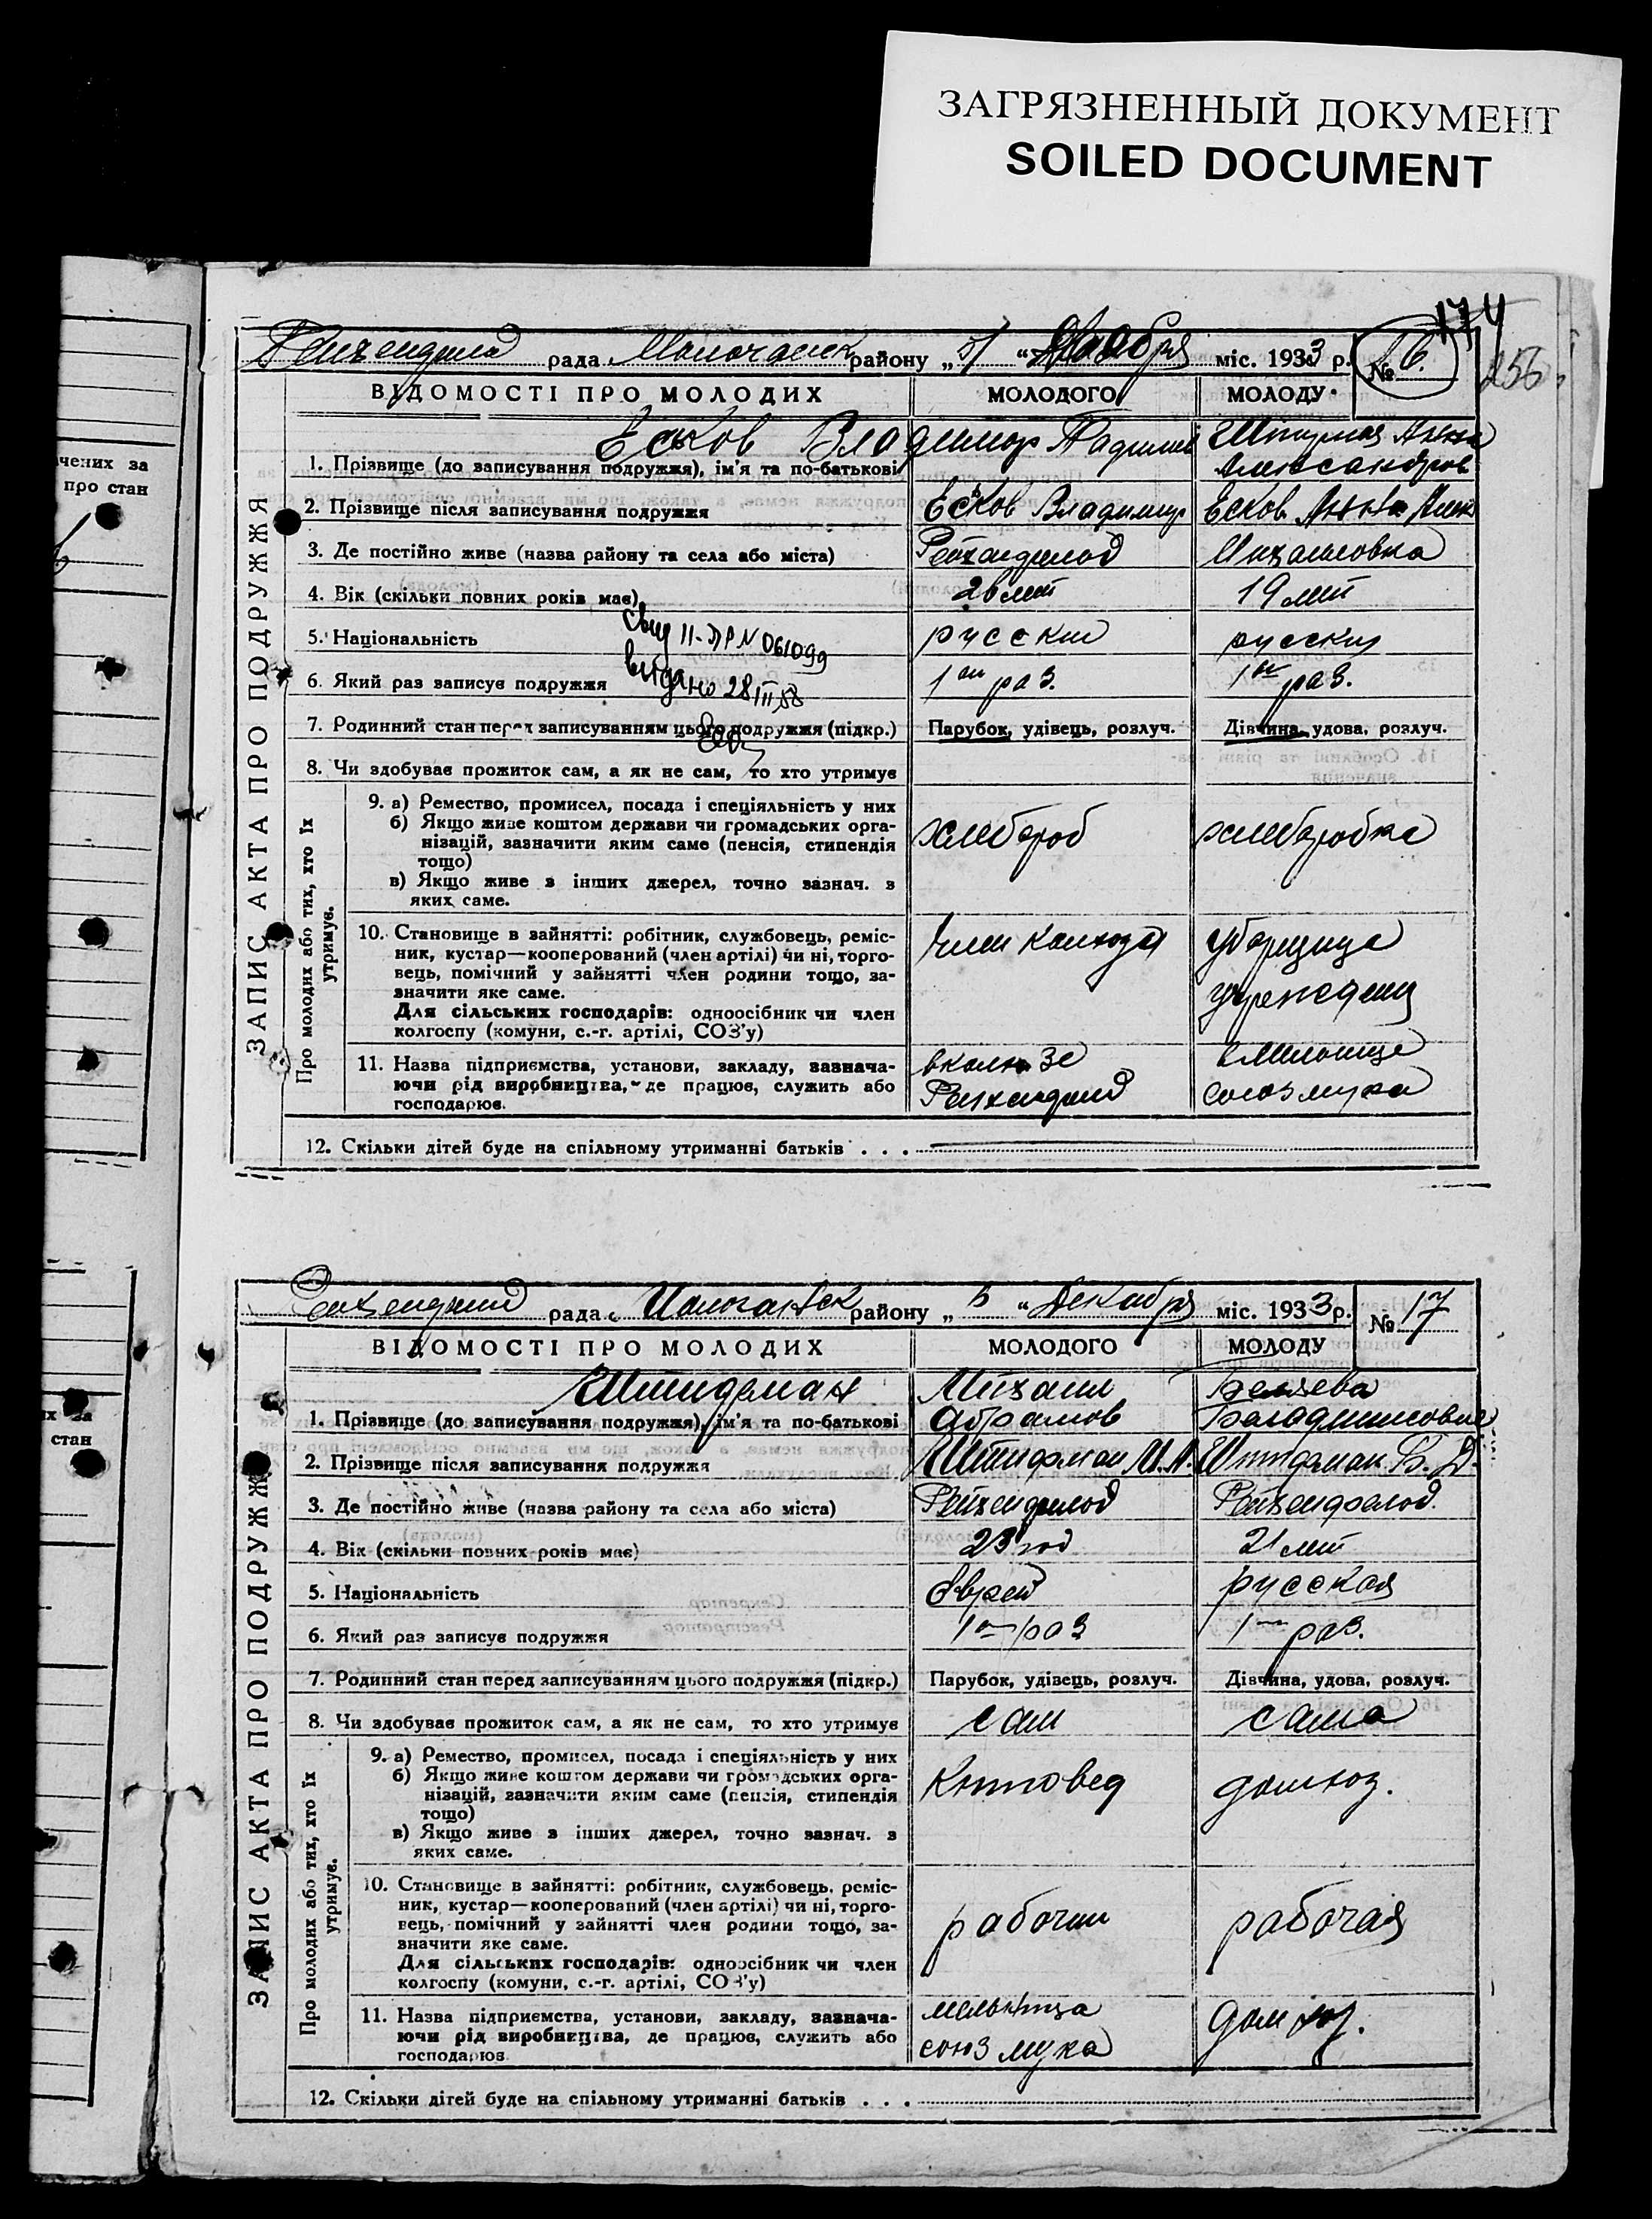 ЗАГРЯЗНЕННЫЙ ДОКУМЕНТ
SOILED DOCUMENT
174
256
чених за
про стан
стан
ЗАПИС АКТА ПРО ПОДРУЖЖЯ
рада района району „ 5 “ Декабря міс. 1933 р. № 16.
ВІДОМОСТІ ПРО МОЛОДИХ МОЛОДОГО МОЛОДУ
Еськов Владимир
1. Прізвище (до записування подружжя), ім’я та по-батькові Александров
2. Прізвище після записування подружжя Еськов Владимир Еськов Анна Алек
3. Де постійно живе (назва району та села або міста) Рейхенфельд Михайловка
4. Вік (скільки повних років має) 26 лет 19 лет
5. Національність русский русский
Свид II-ЛР N 061099
6. Який раз записує подружжя 1ый раз. 1ый раз.
видано 28/III 58
7. Родинний стан перед записуванням цього подружжя (підкр.) Парубок, удівець, розлуч. Дівчина, удова, розлуч.
8. Чи здобуває прожиток сам, а як не сам, то хто утримує
Про молодих або тих, хто їх утримує.
9. а) Ремество, промисел, посада і спеціяльність у них
б) Якщо живе коштом держави чи громадських орга-
нізацій, зазначити яким саме (пенсія, стипендія хлебороб хлеборобка
тощо)
в) Якщо живе з інших джерел, точно зазнач. з
яких саме.
10. Становище в зайнятті: робітник, службовець, реміс- член колхоза уборщица
ник, кустар—кооперований (член артілі) чи ні, торго-
вець, помічний у зайнятті член родини тощо, за-
значити яке саме. учреждения
Для сільських господарів: одноосібник чи член
колгоспу (комуни, с.-г. артілі, СОЗ’у)
11. Назва підприємства, установи, закладу, зазнача- в колхозе в мельнице
ючи рід виробництва, де працює, служить або Рейхенфельд союзмука
господарює.
12. Скільки дітей буде на спільному утриманні батьків . . .
ЗАПИС АКТА ПРО ПОДРУЖЖЯ
рада району „ 5 “ Декабря міс. 1933 р. № 17
ВІДОМОСТІ ПРО МОЛОДИХ МОЛОДОГО МОЛОДУ
Штидман Михаил Беляева
1. Прізвище (до записування подружжя), ім’я та по-батькові Абрамов
2. Прізвище після записування подружжя Штидман М. А. Штидман В. Д.
3. Де постійно живе (назва району та села або міста) Рейхенфельд Рейхенфельд
4. Вік (скільки повних років має) 23 год 21 лет
5. Національність еврей русская
6. Який раз записує подружжя 1ый раз 1ый раз.
7. Родинний стан перед записуванням цього подружжя (підкр.) Парубок, удівець, розлуч. Дівчина, удова, розлуч.
8. Чи здобуває прожиток сам, а як не сам, то хто утримує сам сама
Про молодих або тих, хто їх утримує.
9. а) Ремество, промисел, посада і спеціяльність у них
б) Якщо живе коштом держави чи громадських орга- домхоз.
нізацій, зазначити яким саме (пенсія, стипендія
тощо)
в) Якщо живе з інших джерел, точно зазнач. з
яких саме.
10. Становище в зайнятті: робітник, службовець, реміс-
ник, кустар—кооперований (член артілі) чи ні, торго-
вець, помічний у зайнятті член родини тощо, за- рабочий рабочая
значити яке саме.
Для сільських господарів: одноосібник чи член
колгоспу (комуни, с.-г. артілі, СОЗ’у)
11. Назва підприємства, установи, закладу, зазнача- мельница дом хоз.
ючи рід виробництва, де працює, служить або союз мука
господарює
12. Скільки дітей буде на спільному утриманні батьків . . .